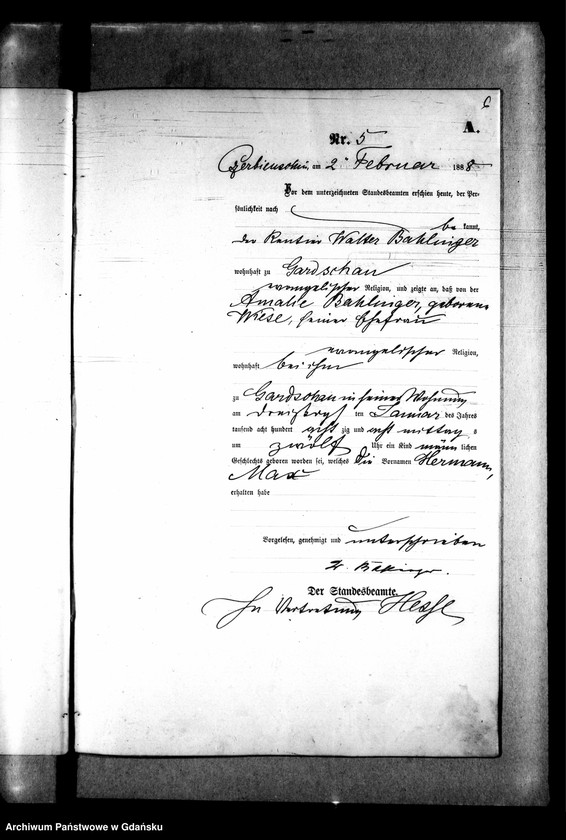 6
A.
Nr. 5
am 2ten Februar 1888
Vor dem unterzeichneten Standesbeamten erschien heute, der Per-
sönlichkeit nach
be kannt,
der Rentier Walter Bahlinger
wohnhaft zu Gardschau
evangelischer Religion, und zeigte an, daß von der
Amalie Bahlinger, geborene
Wiese, seiner Ehefrau
evangelischer Religion,
wohnhaft bei ihm
zu Gardschau in seiner Wohnung
am dreißigsten Januar des Jahres
tausend acht hundert acht zig und acht mittag s
um zwölf Uhr ein Kind männ lichen
Geschlechts geboren worden sei, welches die Vornamen Hermann,
Max
erhalten habe
Vorgelesen, genehmigt und unterschrieben
Der Standesbeamte.
In Vertretung
Archiwum Państwowe w Gdańsku